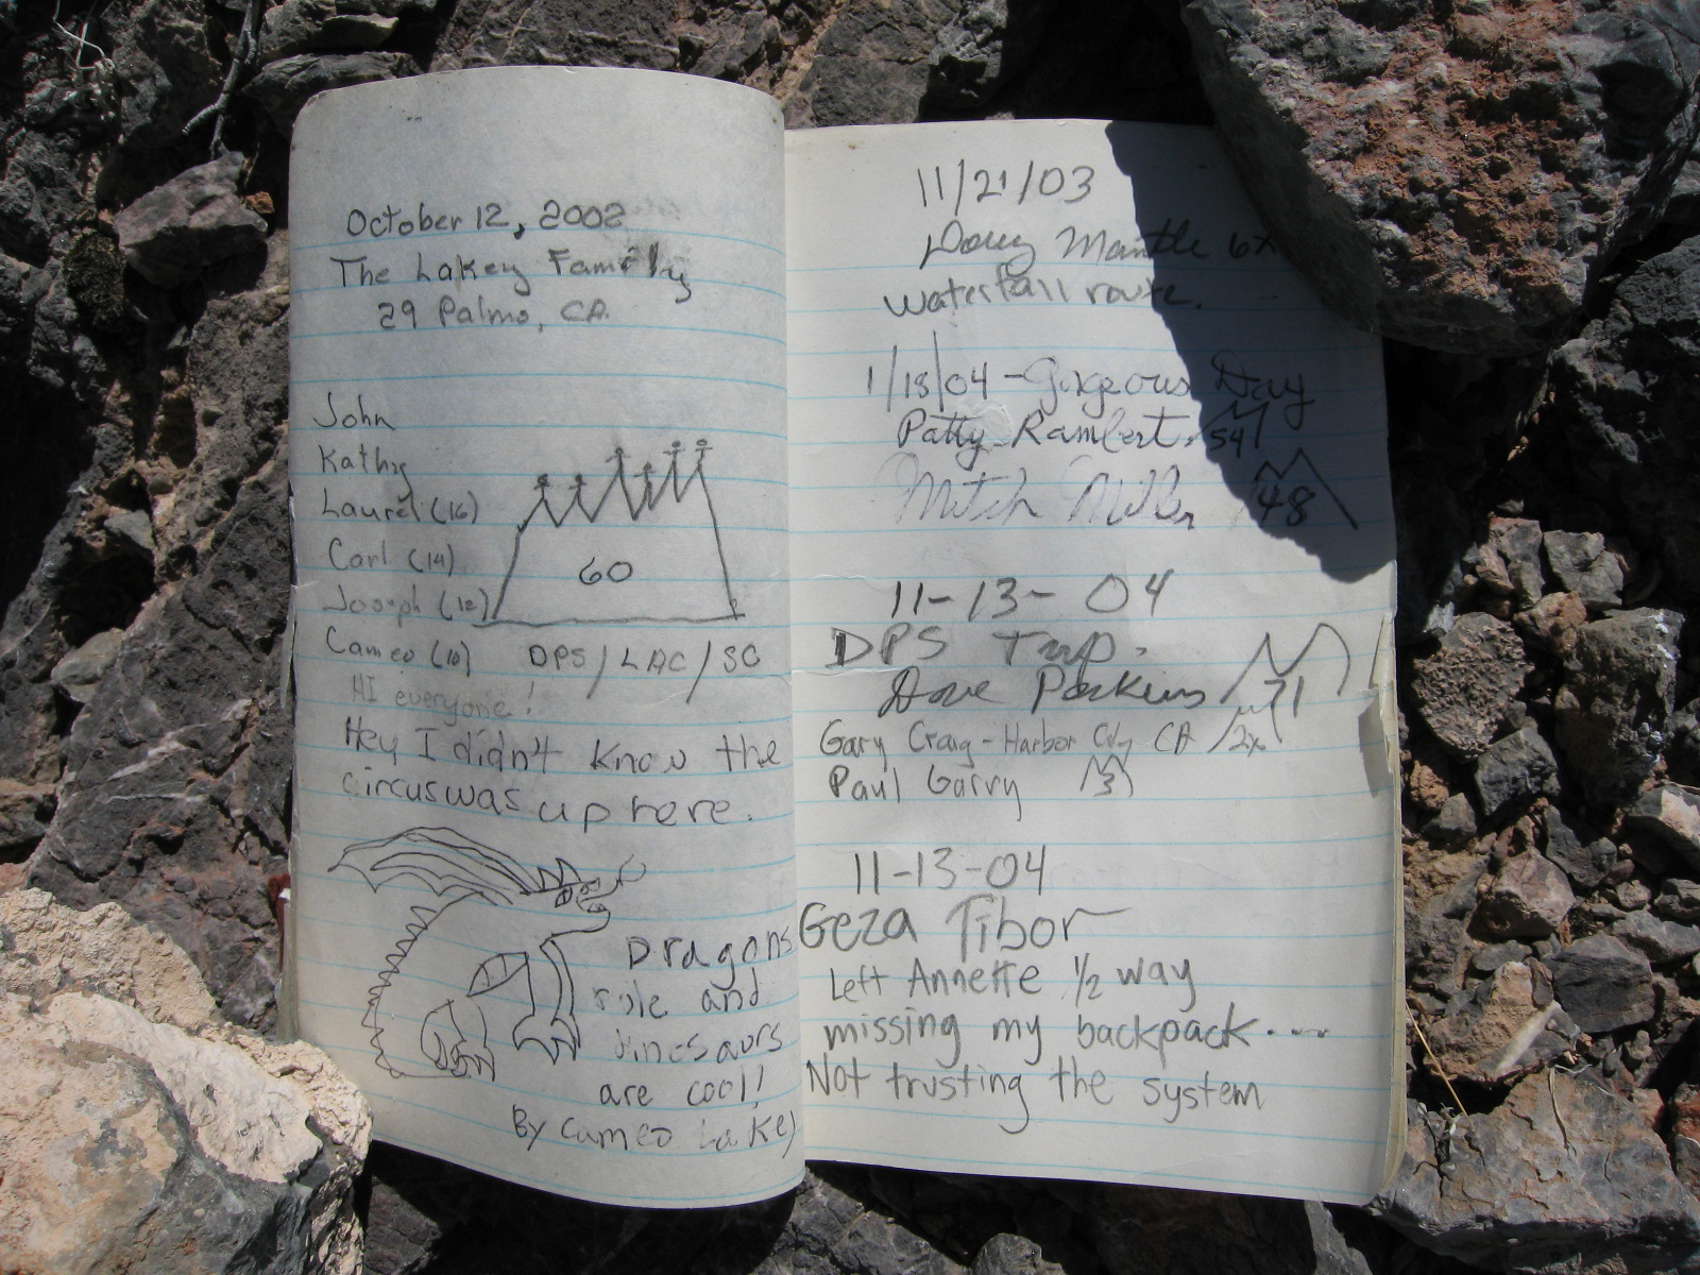 October 12, 2002
The Lakey Family
29 Palms, CA.
John
Kathy
Laurel (16)
Carl (14)
Joseph (12)
Cameo (10)
60
DPS / LAC / SC
HI everyone!
Hey I didn't know the
circus was up here.
Dragons
rule and
dinosaurs
are cool!
By Cameo Lakey
11/21/03
Doug Mantle 6x
waterfall route.
1/18/04 - Gorgeous Day
Patty Rambert 54
Mitch Miller 48
11-13-04
DPS Trip.
Dave Perkins 71
Gary Craig - Harbor City CA 2x
Paul Garry 3
11-13-04
Geza Tibor
Left Annette 1/2 way
missing my backpack....
Not trusting the system